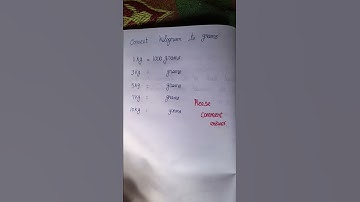 Convert kilogram to grams
1 Kg = 1000 grams
3 Kg = grams
5 Kg = grams
7 Kg = grams
10 Kg = grams
Please
comment
answer